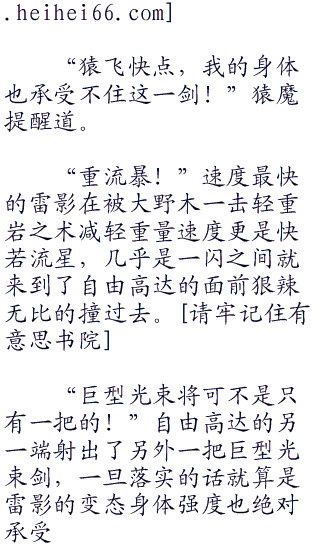 .heihei66.com]
“猿飞快点，我的身体
也承受不住这一剑！”猿魔
提醒道。
“重流暴！”速度最快
的雷影在被大野木一击轻重
岩之术减轻重量速度更是快
若流星，几乎是一闪之间就
来到了自由高达的面前狠辣
无比的撞过去。[请牢记住有
意思书院]
“巨型光束将可不是只
有一把的！”自由高达的另
一端射出了另外一把巨型光
束剑，一旦落实的话就算是
雷影的变态身体强度也绝对
承受